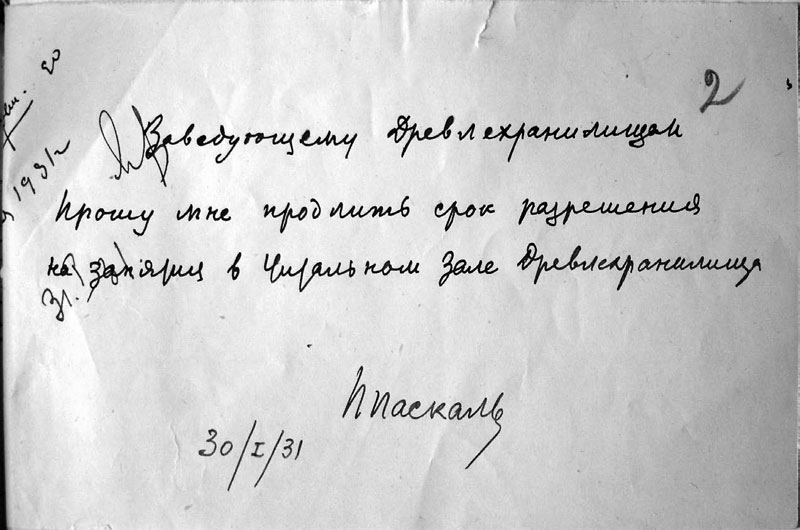 2
Заведующему Древлехранилищем
Прошу мне продлить срок разрешения
на занятия в Читальном Зале Древлехранилища
ППаскаль
30/I/31
20
1931г
31.